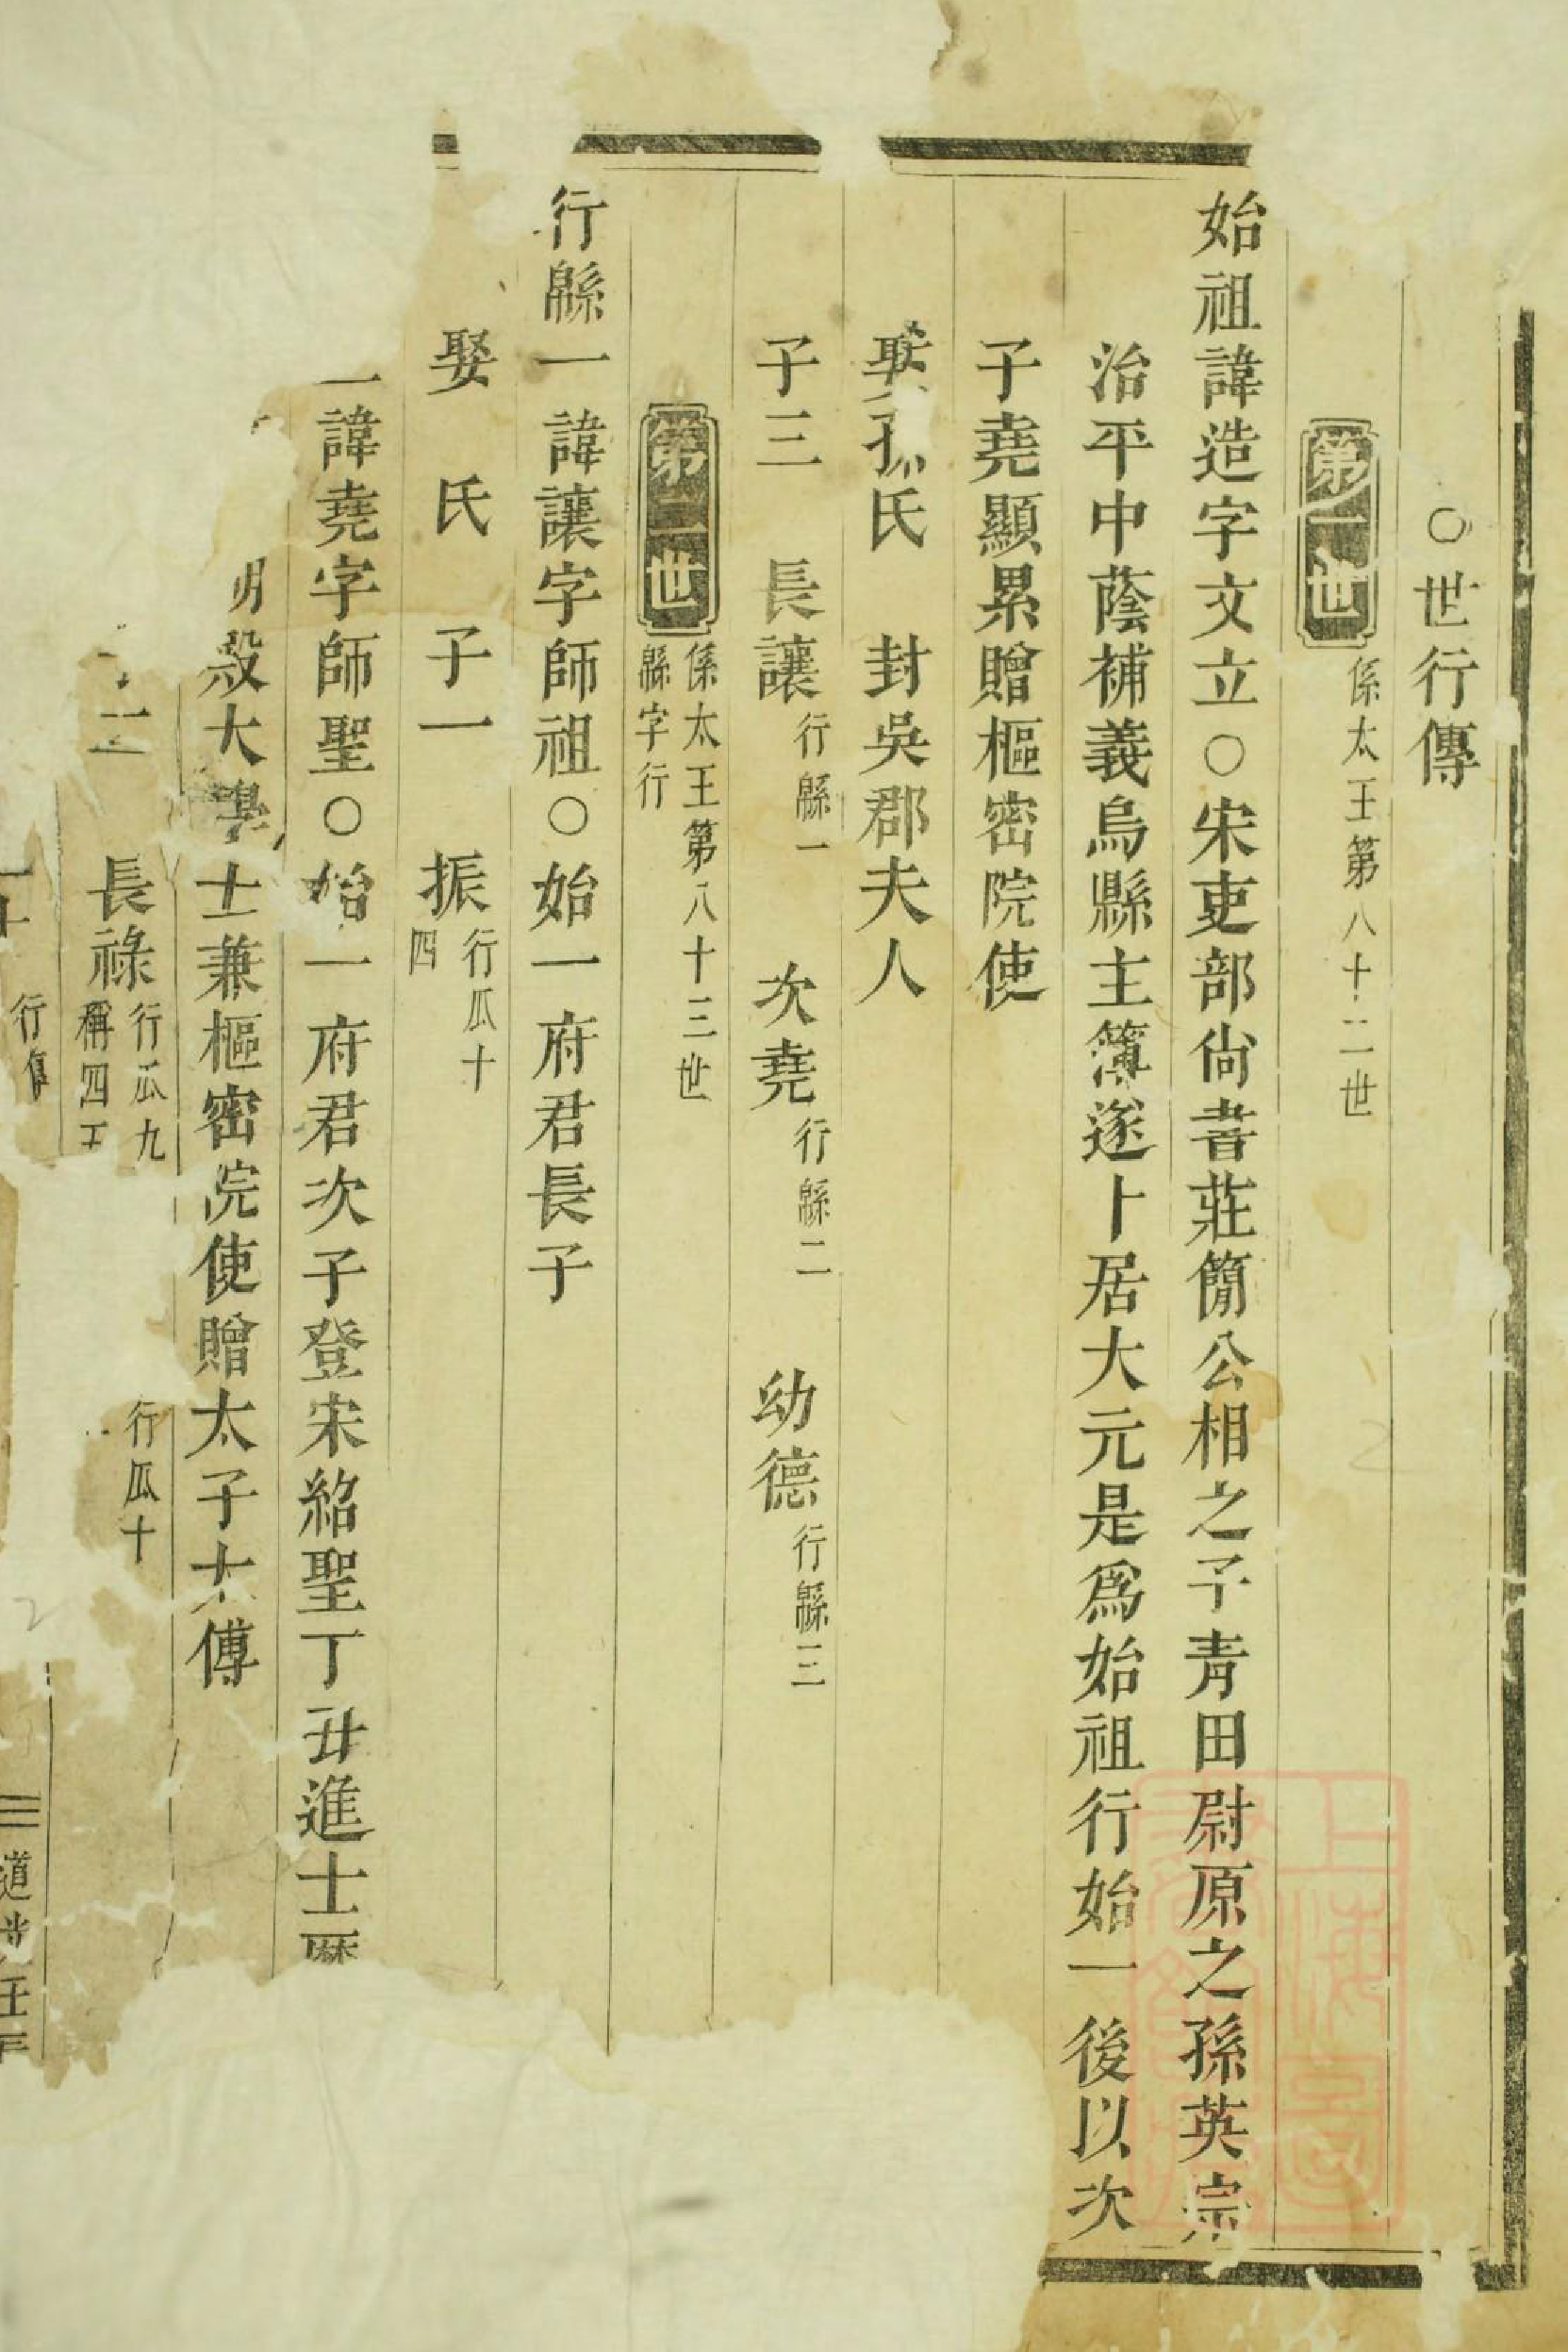 ○世行傳
第一世 係太王第八十二世
始祖諱造字文立○宋吏部尙書莊簡公相之子青田尉原之孫英宗
治平中蔭補義烏縣主簿遂卜居大元是爲始祖行始一後以次
子堯顯累贈樞密院使
娶孫氏 封吳郡夫人
子三 長讓行緜一 次堯行緜二 幼德行緜三
第二世 係太王第八十三世緜字行
行緜一 諱讓字師祖○始一府君長子
娶 氏 子一 振行瓜十四
一諱堯字師聖○始一府君次子登宋紹聖丁丑進士歷
明殿大學士兼樞密院使贈太子太傅
二 長祿行瓜九稱四五 行瓜十
行傳
道光壬
上海圖書館藏